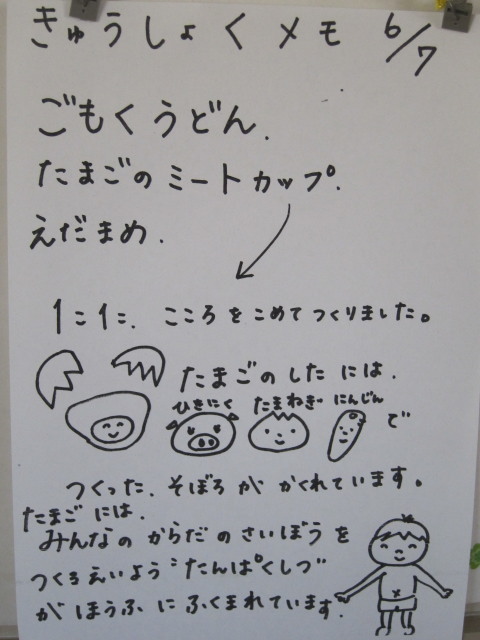 きゅうしょくメモ 6/7
ごもくうどん.
たまごのミートカップ.
えだまめ.
1こ1こ. こころをこめてつくりました。
たまごのしたには.
ひきにく たまねぎ にんじん で
つくった. そぼろがかくれています。
たまごには.
みんなのからだのさいぼうを
つくるえいよう“たんぱくしつ”
がほうふにふくまれています.